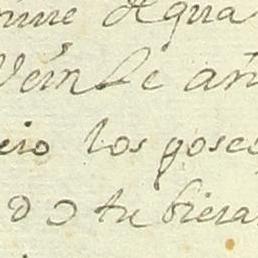 de Agua
Veinte añ
ero los gosee
do tubiera